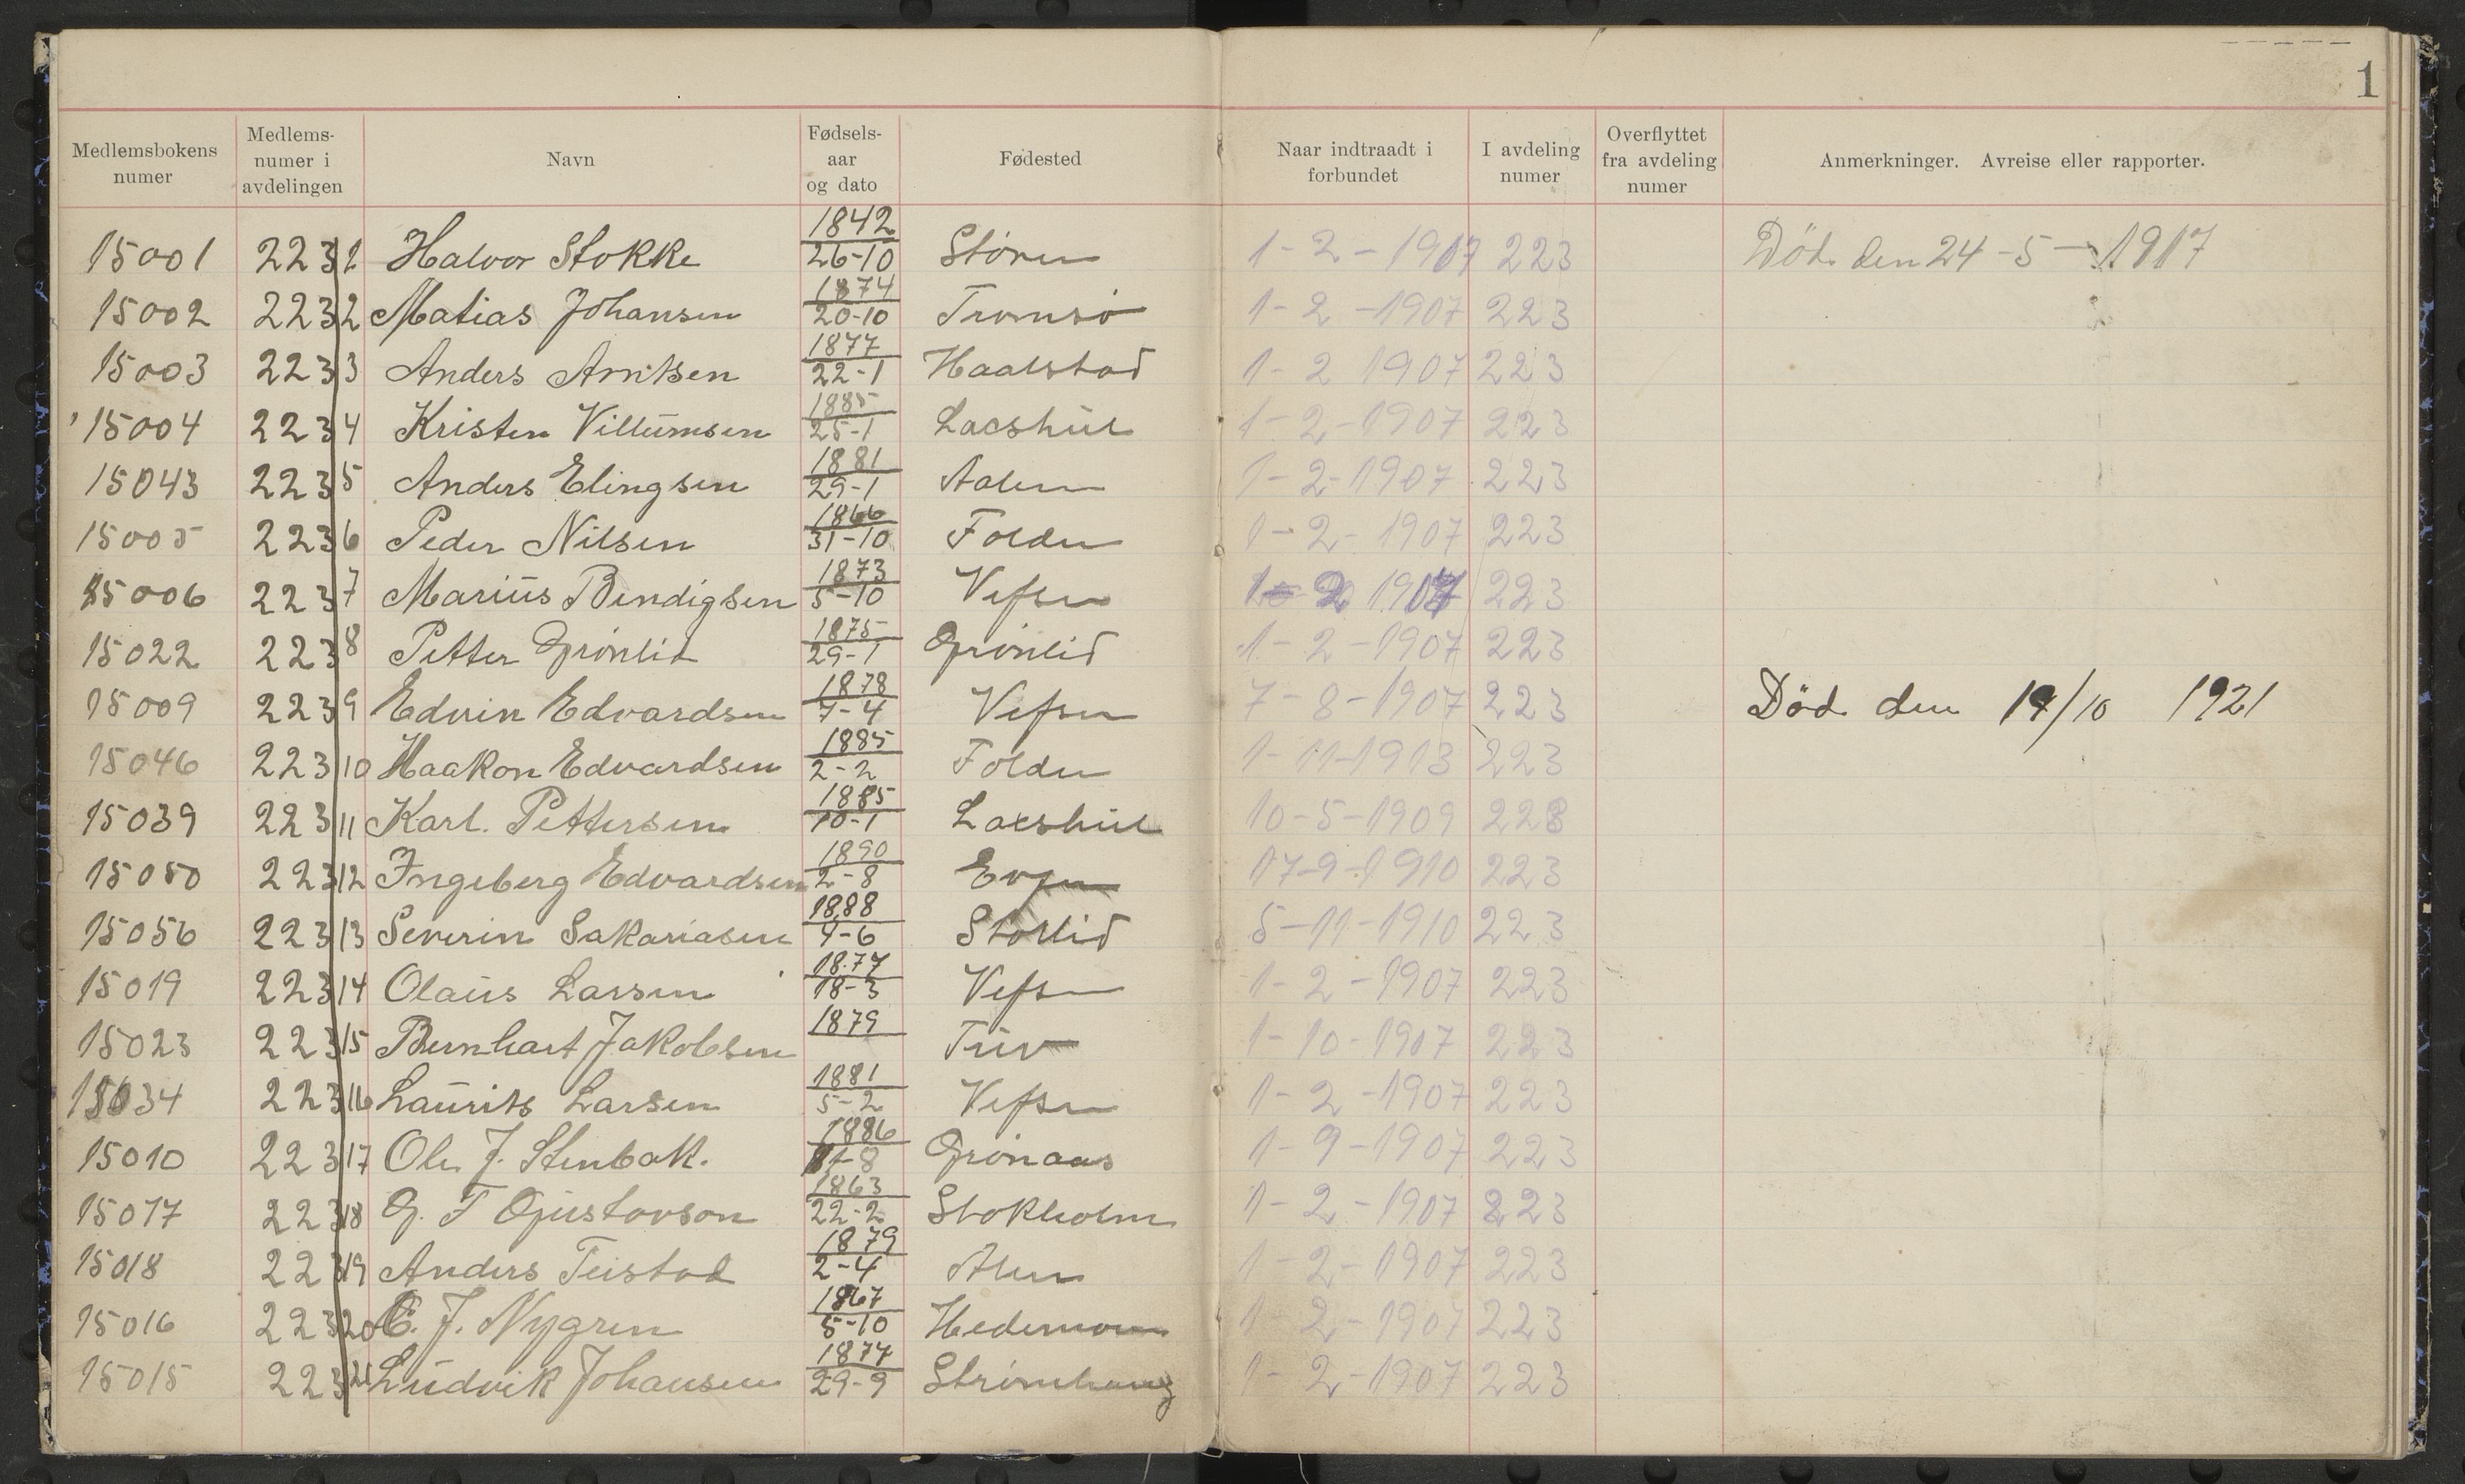 1
Medlemsbokens numer | Medlems-numer i avdelingen | Navn | Fødsels-aar og dato | Fødested | Naar indtraadt i forbundet | I avdeling numer | Overflyttet fra avdeling numer | Anmerkninger. Avreise eller rapporter.
15001 223 1 Halvor Stokke 1842 26-10 Støren 1-2-1907 223 Död den 24-5-1917
15002 223 2 Matias Johansen 1874 20-10 Tromsö 1-2-1907 223
15003 223 3 Anders Arntsen 1877 22-1 Haalstad 1-2 1907 223
15004 223 4 Kristen Villumsen 1885 25-1 Lacshul 1-2-1907 223
15043 223 5 Anders Elingsen 1881 29-1 Aalen 1-2-1907 223
15005 223 6 Peder Nilsen 1866 31-10 Folden 1-2-1907 223
15006 223 7 Marius Bendigsen 1873 5-10 Vefsen 1-2 1907 223
15022 223 8 Petter Grönlid 1875 29-1 Grönlid 1-2-1907 223
15009 223 9 Edvin Edvardsen 1878 7-4 Vefsen 7-8-1907 223 Död den 19/10 1921
15046 223 10 Haakon Edvardsen 1885 2-2 Folden 1-11-1913 223
15039 223 11 Karl. Pettersen 1885 10-1 Lacshul 10-5-1909 223
15050 223 12 Ingeberg Edvardsen 1890 2-8 17-9-1910 223
15056 223 13 Severin Sakariasen 1888 4-6 Storlid 5-11-1910 223
15019 223 14 Olaus Larsen 1877 18-3 Vefsen 1-2-1907 223
15023 223 15 Bernhart Jakobsen 1879 Tuv 1-10-1907 223
15034 223 16 Laurits Larsen 1881 5-2 Vefsen 1-2-1907 223
15010 223 17 Ole J. Stenbak. 1886 -8 Grönaas 1-9-1907 223
15017 223 18 G. T Gustavson 1863 22-2 Stokholm 1-2-1907 223
15018 223 19 Anders Teistad 1879 2-4 Alen 1-2-1907 223
15016 223 20 C. J. Nygren 1867 5-10 Hedemora 1-2-1907 223
15015 223 21 Ludvik Johansen 1877 29-9 Strömhaug 1-2-1907 223